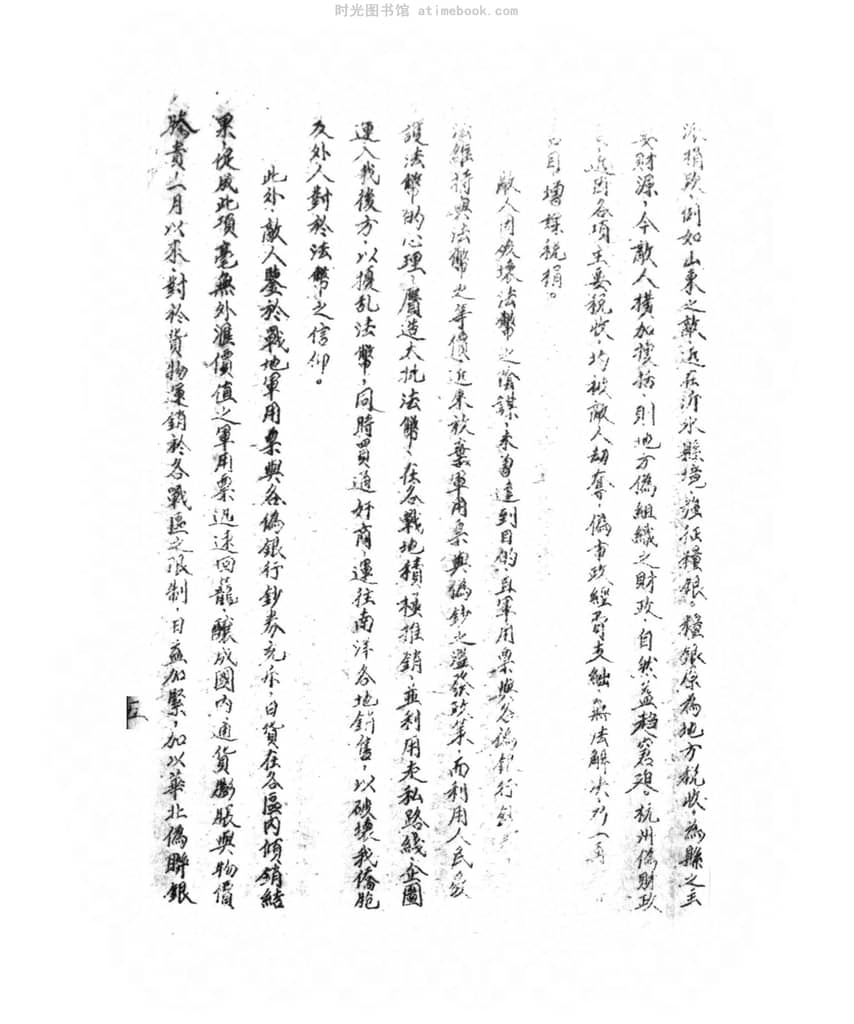 时光图书馆 atimebook.com
捐款,例如山東之敵近在沂水縣境強征糧銀,糧銀原為地方稅收,為縣之主
要財源,今敵人橫加搜括,則地方偽組織之財政,自然益趨窘艱,杭州偽財政
近聞各項主要稅收,均被敵人劫奪,偽市政經費支絀,無法解決,
增課稅捐。
敵人因破壞法幣之陰謀,未曾達到目的,且軍用票與各偽銀行鈔
法維持與法幣之等價,近來放棄軍用票與偽鈔之濫發政策,而利用人民愛
護法幣的心理,贗造大批法幣,在各戰地積極推銷,並利用走私路綫,企圖
運入我後方,以擾乱法幣,同時買通奸商,運往南洋各地銷售,以破壞我僑胞
及外人對於法幣之信仰。
此外,敵人鑒於戰地軍用票與各偽銀行鈔券充斥,日貨在各區內傾銷結
果,促成此項毫無外滙價值之軍用票迅速回籠,釀成國內通貨膨脹與物價
騰貴,月以來,對於貨物運銷於各戰區之限制,日益加緊,加以華北偽聯銀
五